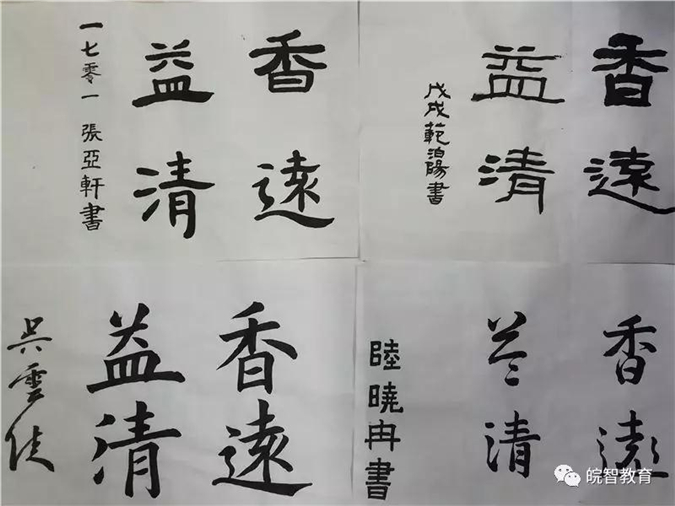 香遠
益清
一七零一張亞軒書
香遠
益清
戊戌範泊陽書
香遠
益清
吳雲
香遠
益清
陸曉冉書
皖智教育